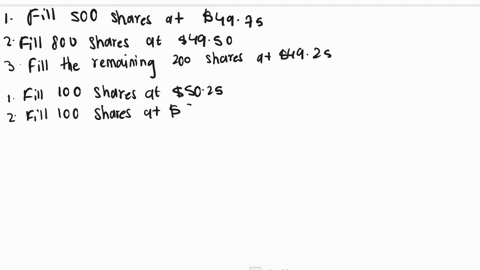 1. Fill 500 shares at $49.75
2. Fill 800 shares at $49.50
3. Fill the remaining 200 shares at $49.25
1. Fill 100 shares at $50.25
2. Fill 100 shares at $